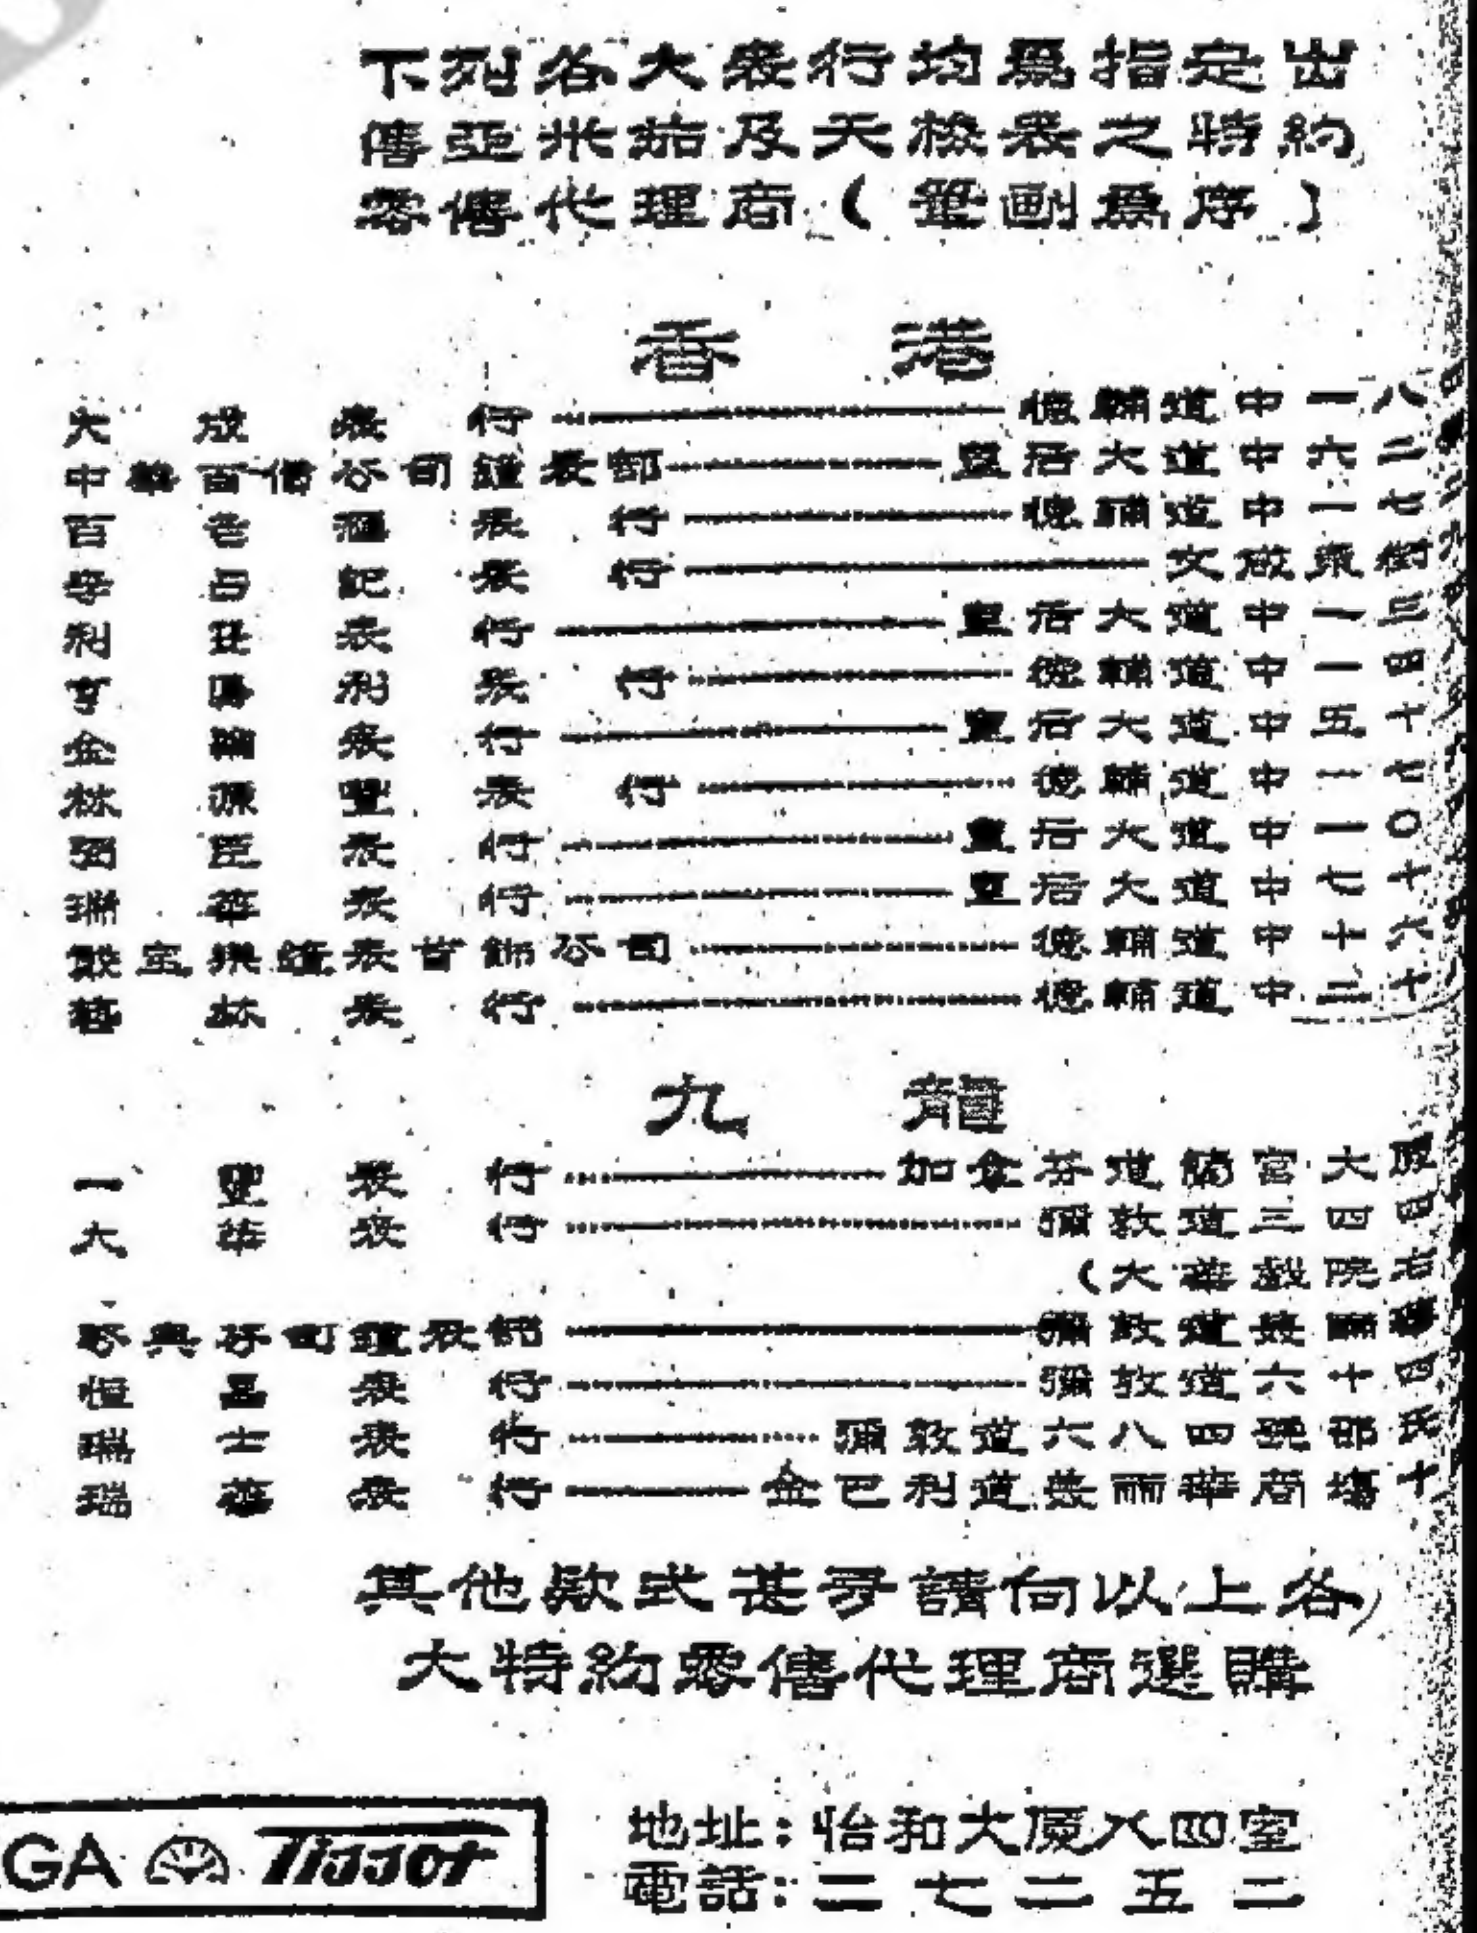 下列各大表行均為指定出
售亞米茄及天梭表之特約
零售代理商(筆劃為序)
香港
大成表行 德輔道中一八
中華百貨公司鐘表部 皇后大道中六二
百老滙表行 德輔道中一七
李占記表行 文咸東街
利 表行 皇后大道中一三
亨得利表行 德輔道中一四
金輪表行 皇后大道中五十
林源豐表行 德輔道中一七
臣表行 皇后大道中一一〇
瑞華表行 皇后大道中七十
戴宝樂鐘表首飾公司 德輔道中十六
藝林表行 德輔道中二十
九龍
一豐表行 加拿芬道 宮大厦
大華表行 彌敦道三四四
(大華戲院右
公司鐘表部 彌敦道
恒昌表行 彌敦道六十四
瑞士表行 彌敦道六八四號邵氏
瑞華表行 金巴利道美麗華商場十
其他款式甚多請向以上各
大特約零售代理商選購
GA Tissot
地址:怡和大廈八四室
電話:二七二五二